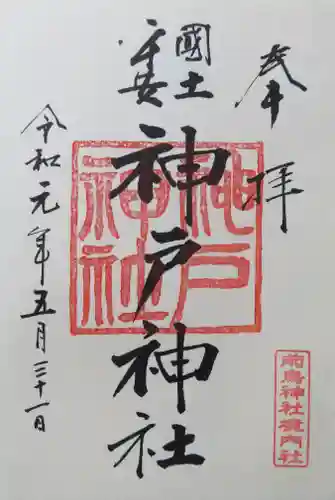 奉拝
國土安
神戸神社
神戸神社
令和元年五月三十一日
前鳥神社境内社